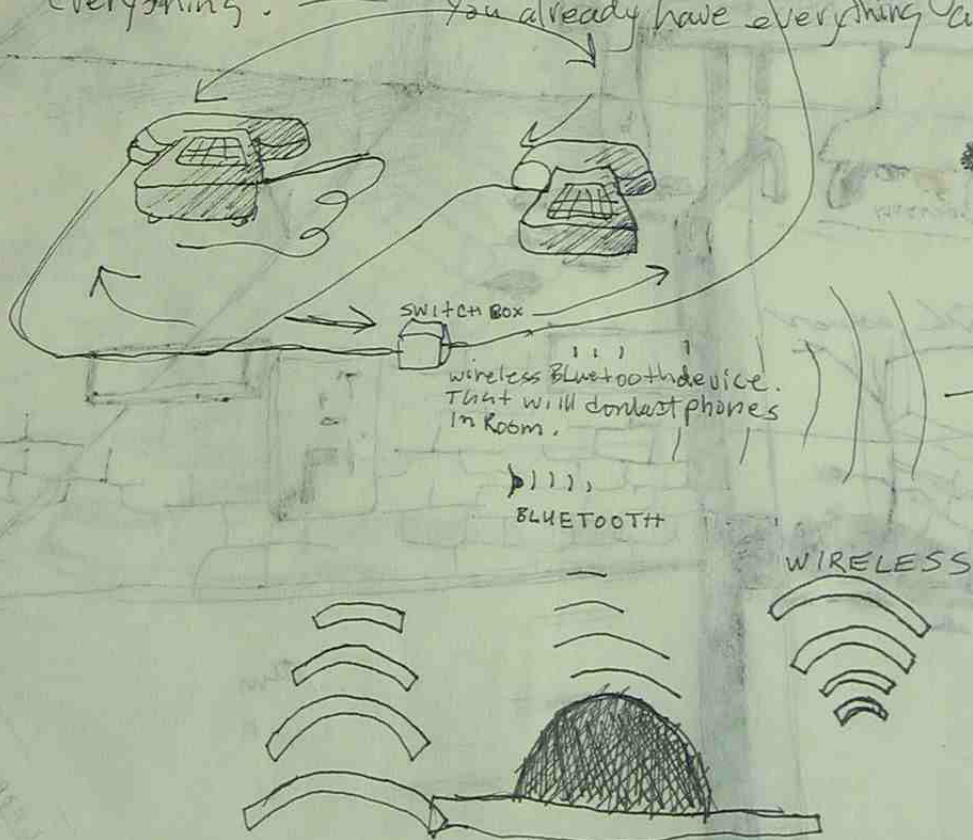 everything.
You already have everything
SWITCH BOX
wireless Bluetooth device.
That will contact phones
In Room.
BLUETOOTH
WIRELESS